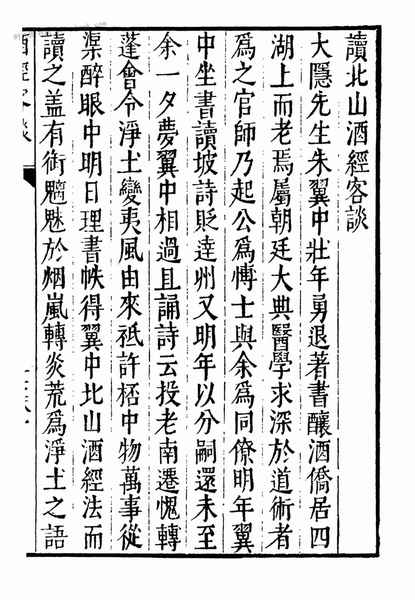 讀北山酒經客談
大隱先生朱翼中壯年勇退著書釀酒僑居四
湖上而老焉屬朝廷大典醫學求深於道術者
爲之官師乃起公爲愽士與余爲同僚明年翼
中坐書讀坡詩貶逹州又明年以分嗣還未至
余一夕夢翼中相過且誦詩云投老南遷愧轉
蓬會令淨土變夷風由來祗許桮中物萬事從
渠醉眼中明日理書帙得翼中北山酒經法而
讀之盖有術魑魅於烟嵐轉炎荒爲淨土之語